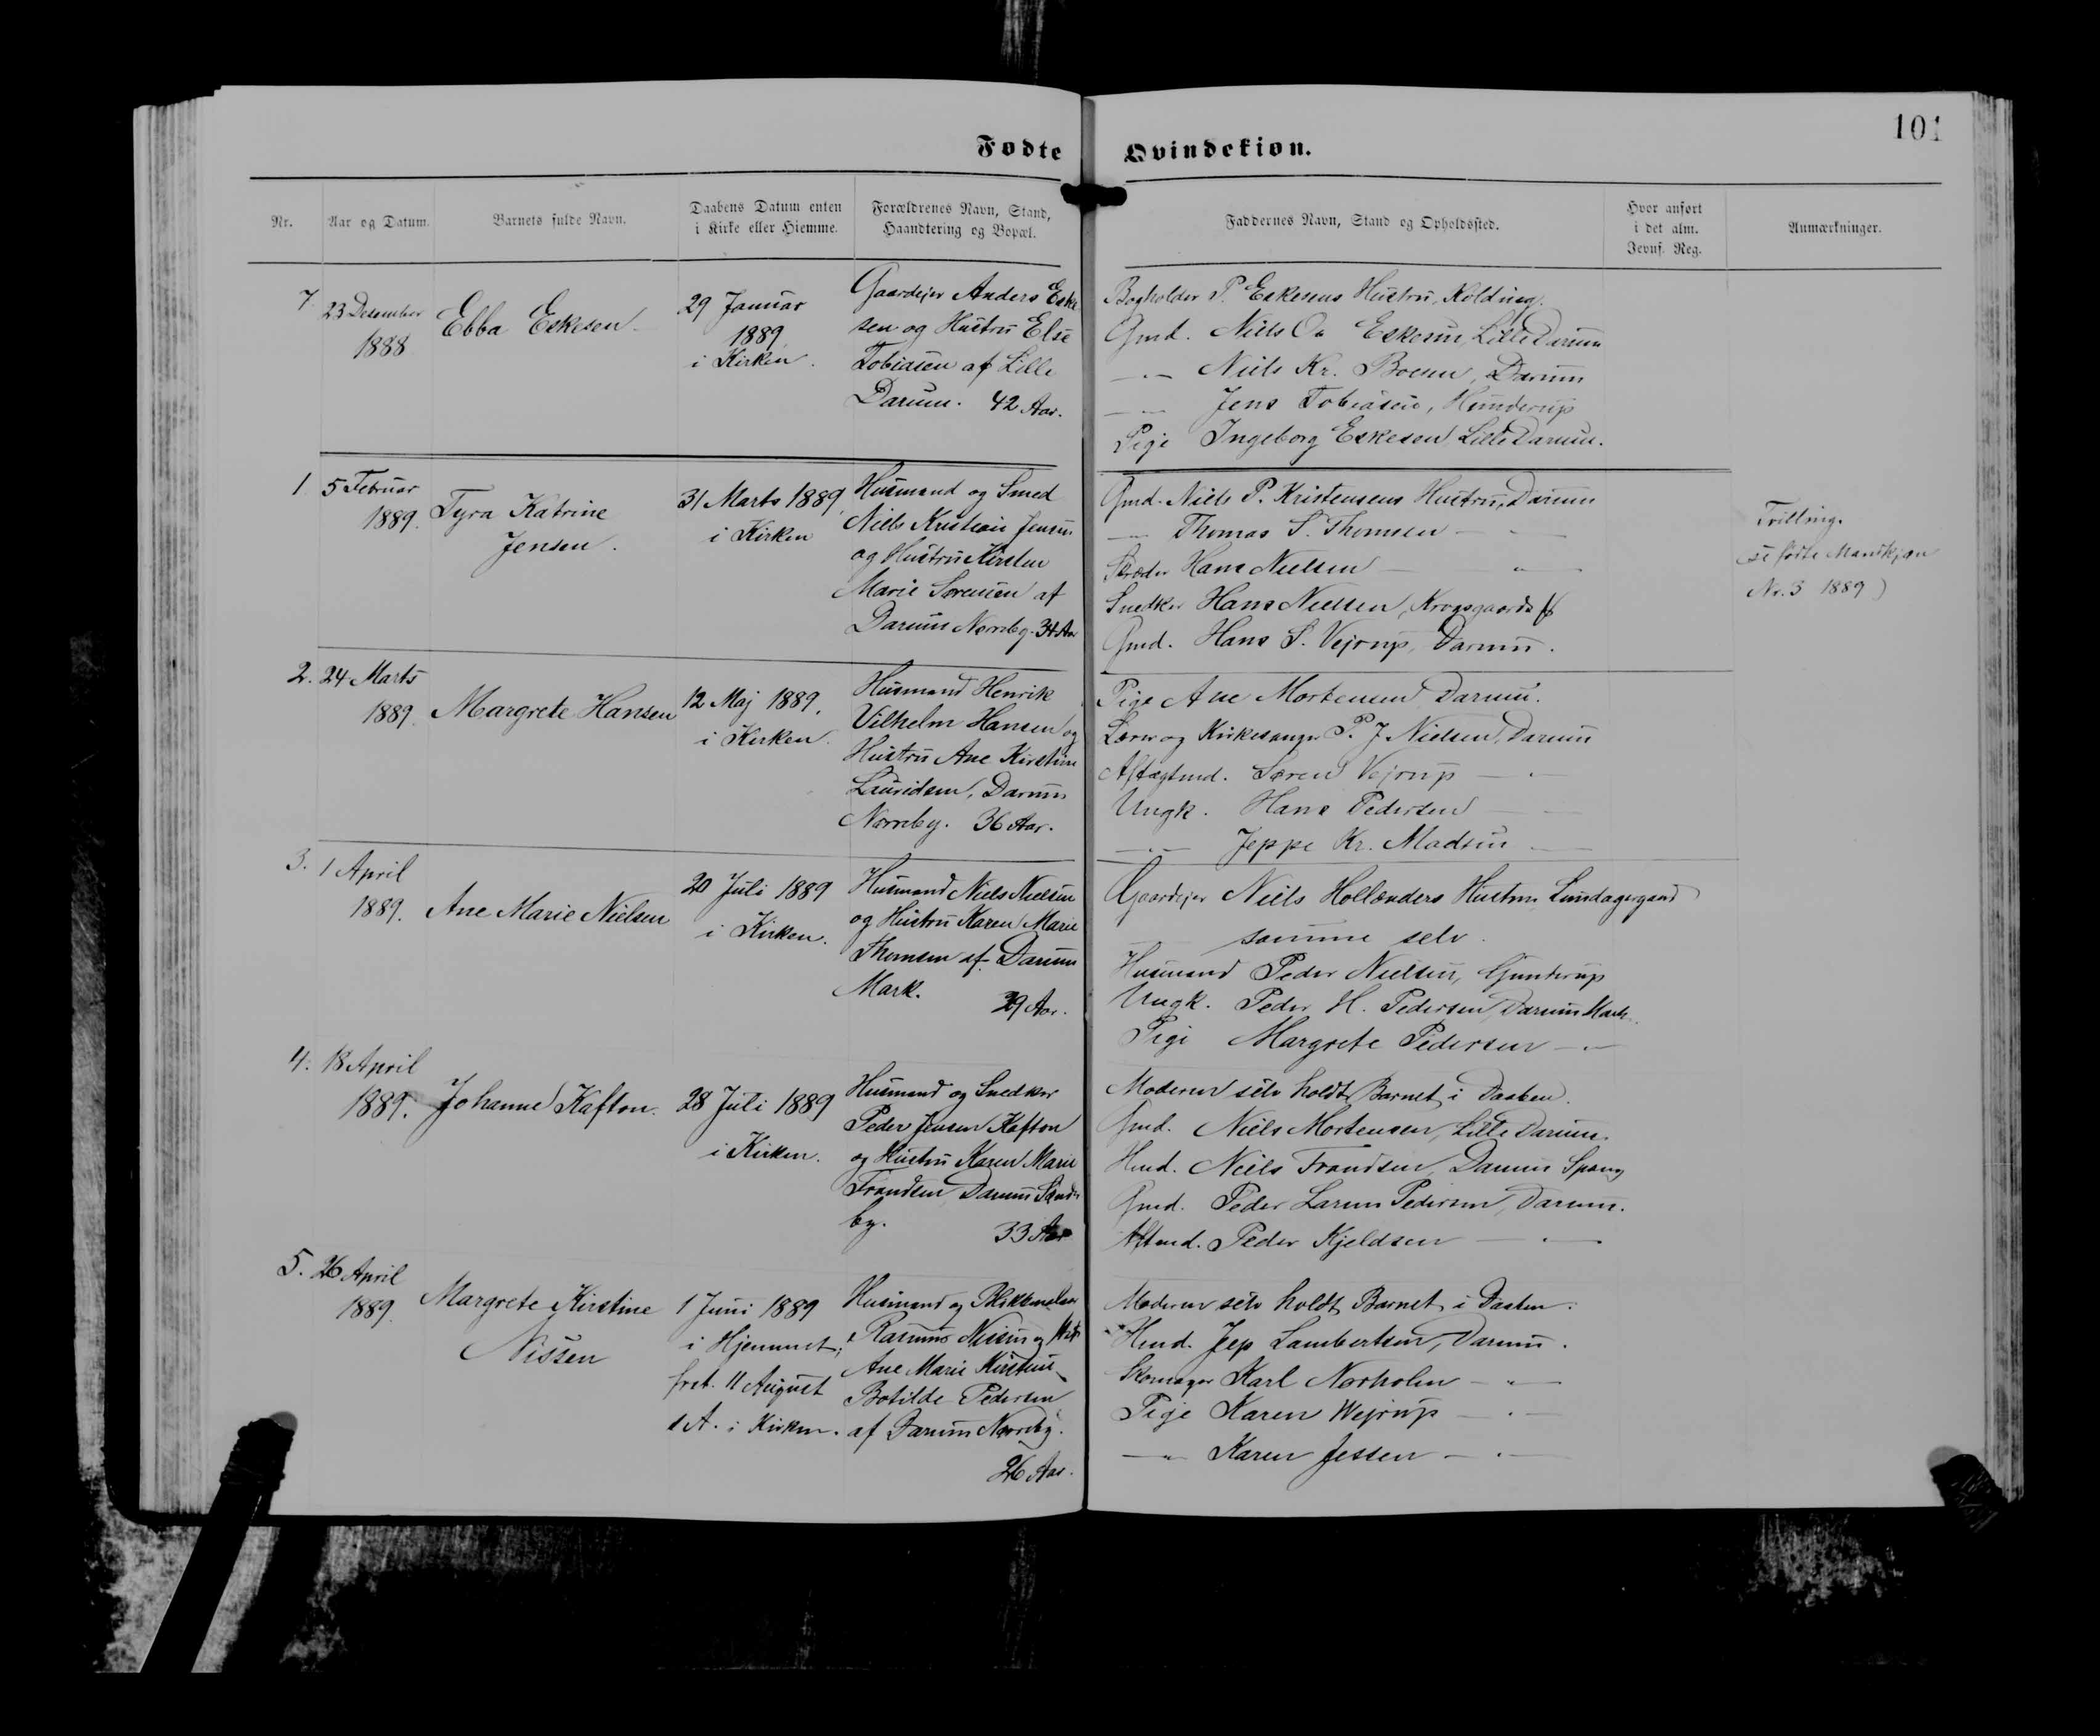 101
Fødte
Qvindekiøn.
Nr.
Aar og Datum.
Barnets fulde Navn.
Daabens Datum enten
i Kirke eller Hiemme.
Forældrenes Navn, Stand,
Haandtering og Bopæl.
Faddernes Navn, Stand og Opholdssted.
Hvor anført
i det alm.
Jevnf. Reg.
Anmærkninger.
7.
23 Desember
1888
Ebba Eskesen
29 Januar
1889
i Kirken.
Gaardejer Anders Eske
sen og Hustru Else
Tobiasen af Lille
Darum. 42 Aar.
Bogholder P. Eskesens Hustru, Kolding.
Gmd. Niels Eskesen, Lille Darum
—"— Niels Kr. Boesen, Darum
—"— Jens Tobiasen, Hunderup
Pige Ingeborg Eskesen, Lille Darum.
1
5 Februar
1889.
Tyra Katrine
Jensen.
31 Marts 1889,
i Kirken
Husmand og Smed
Niels Kristian Jensen
og Hustru Kirsten
Marie Sørensen af
Darum Nørreby. 34 Aar
Gmd. Niels P. Kristensens Hustru, Darum
—"— Thomas S. Thomsen — " —
Skræder Hans Nielsen — " —
Snedker Hans Nielsen, Krogsgaards
Gmd. Hans S. Vejrup, Darum.
Tvilling.
(se fødte Mandkjøn
Nr. 3 1889)
2.
24 Marts
1889.
Margrete Hansen
12 Maj 1889.
i Kirken.
Husmand Henrik
Vilhelm Hansen og
Hustru Ane Kirstine
Lauridsen, Darum
Nørreby. 36 Aar.
Pige Ane Mortensen, Darum.
Lærer og Kirkesanger P. J. Nielsen, Darum
Aftægtmd. Søren Vejrup — " —
Ungk. Hans Pedersen — " —
—"— Jeppe Kr. Madsen — " —
3.
1 April
1889.
Ane Marie Nielsen
20 Juli 1889
i Kirken.
Husmand Niels Nielsen
og Hustru Karen Marie
Thomsen af Darum
Mark. 29 Aar.
Gaardejer Niels Hollænders Hustru, Lundagergaard
— samme selv.
Husmand Peder Nielsen, Gunderup
Ungk. Peder H. Pedersen, Darum Mark.
Pige Margrete Pedersen — " —
4.
18 April
1889.
Johanne Kafton.
28 Juli 1889
i Kirken.
Husmand og Snedker
Peder Jensen Kafton
og Hustru Karen Marie
Frandsen, Darum Sønder
by. 33 Aar
Moderen selv holdt Barnet i Daaben.
Gmd. Niels Mortensen, Lille Darum.
Hmd. Niels Frandsen, Darum Spang
Gmd. Peder Larsen Pedersen, Darum.
Aftmd. Peder Kjeldsen — " —
5.
26 April
1889.
Margrete Kirstine
Nissen
1 Juni 1889
i Hjemmet;
fret. 11 August
s. A. i Kirken.
Husmand og
Rasmus Nissen og Hustr
Ane Marie Kirstine
Botilde Pedersen
af Darum Nørreby.
26 Aar.
Moderen selv holdt Barnet i Daaben.
Hmd. Jep Lambertsen, Darum.
Skomager Karl Nørholm — " —
Pige Karen Wejrup — " —
—"— Karen Jessen — " —